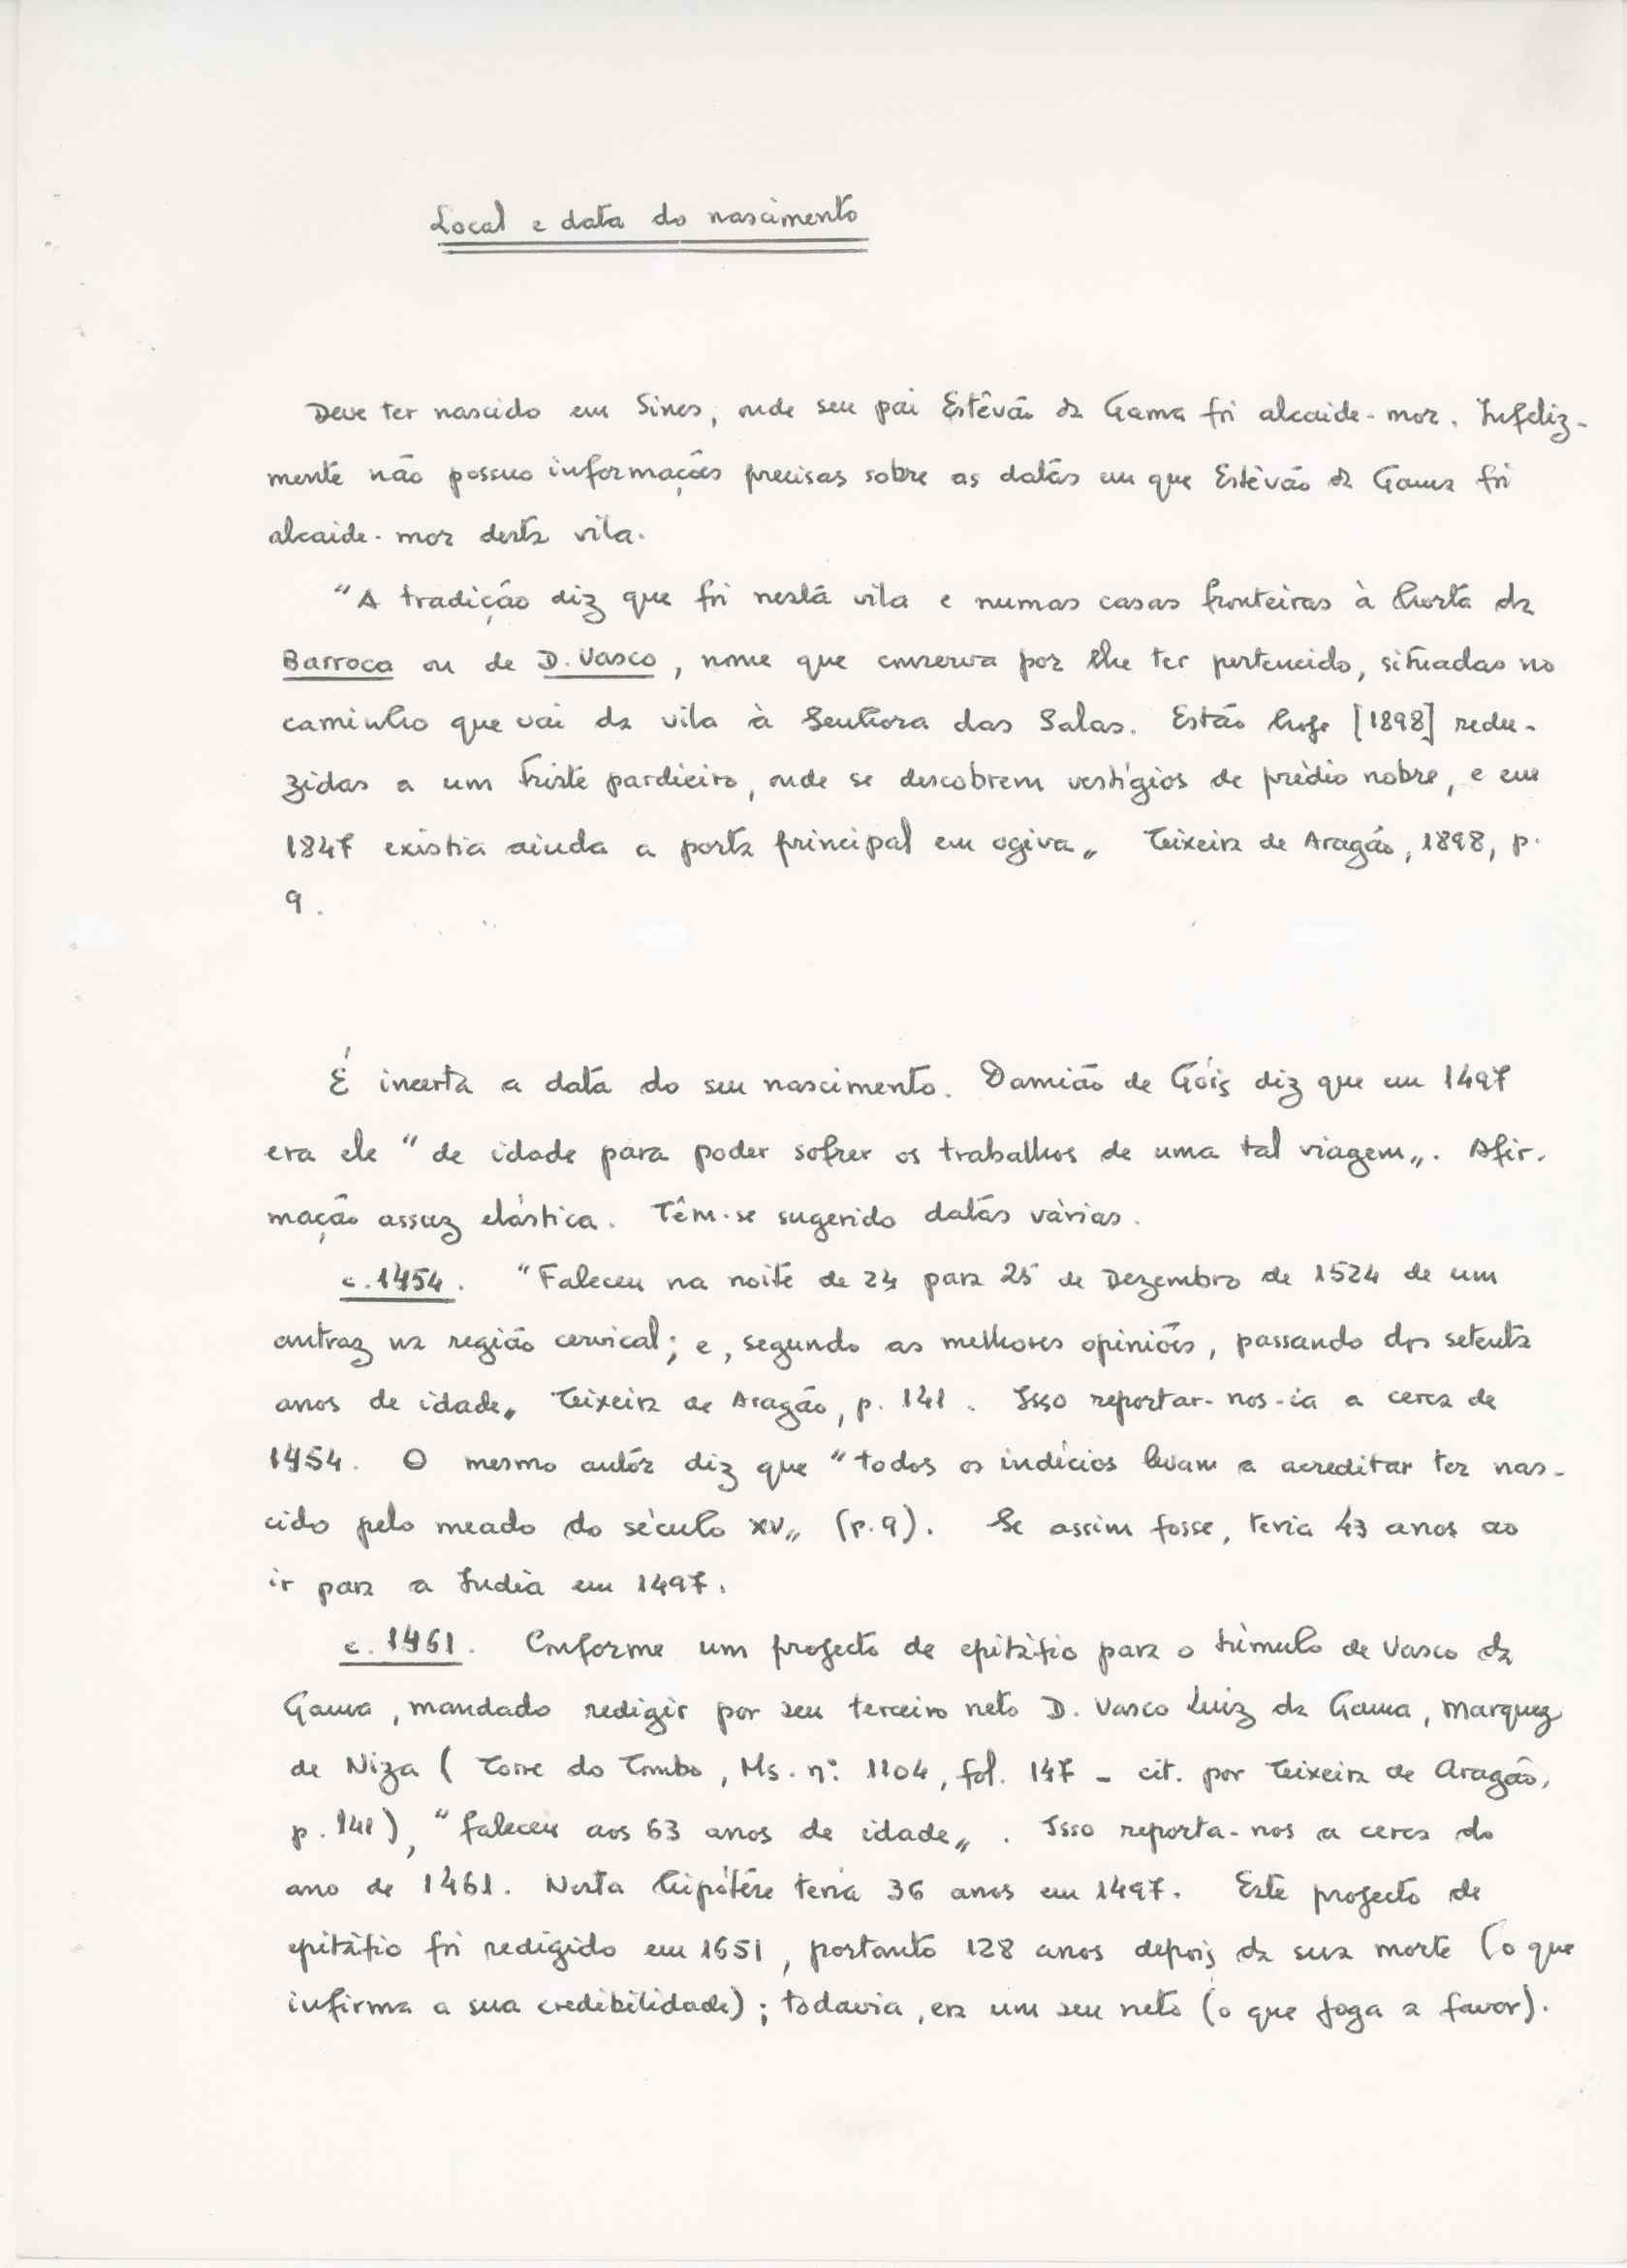 Local e data do nascimento
Deve ter nascido em Sines, onde seu pai Estêvão da Gama foi alcaide-mor. Infeliz-
mente não possuo informações precisas sobre as datas em que Estêvão da Gama foi
alcaide-mor desta vila.
"A tradição diz que foi nesta vila e numas casas fronteiras à horta da
Barroca ou de D. Vasco, nome que conserva por lhe ter pertencido, situadas no
caminho que vai da vila à Senhora das Salas. Estão hoje [1898] redu-
zidas a um triste pardieiro, onde se descobrem vestígios de prédio nobre, e em
1847 existia ainda a porta principal em ogiva„ Teixeira de Aragão, 1898, p.
9.
É incerta a data do seu nascimento. Damião de Góis diz que em 1497
era ele "de idade para poder sofrer os trabalhos de uma tal viagem„. Afir-
mação assaz elástica. Têm-se sugerido datas várias.
c. 1454. "Faleceu na noite de 24 para 25 de Dezembro de 1524 de um
antraz na região cervical; e, segundo as melhores opiniões, passando dos setenta
anos de idade„ Teixeira de Aragão, p. 141. Isso reportar-nos-ia a cerca de
1454. O mesmo autor diz que "todos os indícios levam a acreditar ter nas-
cido pelo meado do século XV„ (p. 9). Se assim fosse, teria 43 anos ao
ir para a Índia em 1497.
c. 1461. Conforme um projecto de epitáfio para o túmulo de Vasco da
Gama, mandado redigir por seu terceiro neto D. Vasco Luiz da Gama, Marquez
de Niza (Torre do Tombo, Ms. nº 1104, fol. 147 - cit. por Teixeira de Aragão,
p. 141), "faleceu aos 63 anos de idade„. Isso reporta-nos a cerca do
ano de 1461. Nesta hipótese teria 36 anos em 1497. Este projecto de
epitáfio foi redigido em 1651, portanto 128 anos depois da sua morte (o que
infirma a sua credibilidade); todavia, era um seu neto (o que joga a favor).